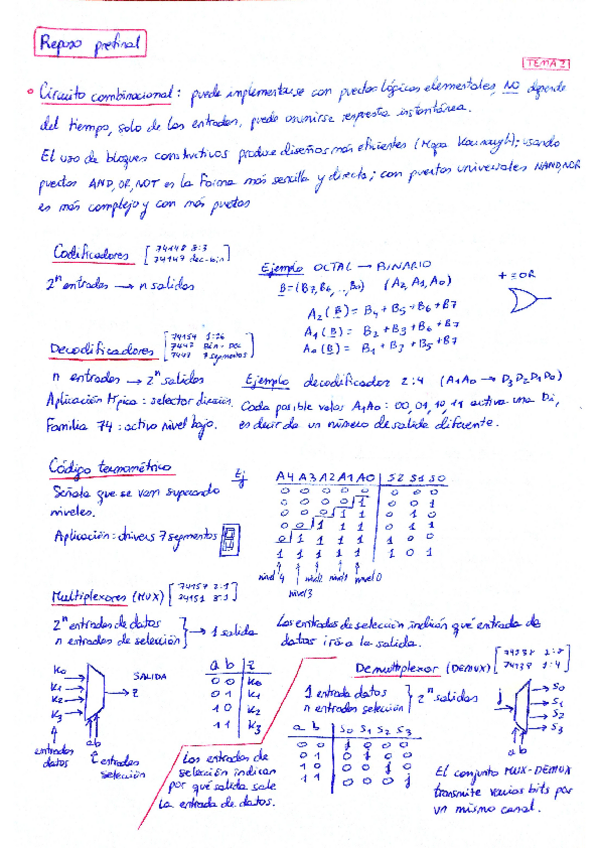 Repaso prefinal
TEMA 2
Circuito combinacional: puede implementarse con puertas lógicas elementales, NO depende
del tiempo, solo de las entradas, puede asumirse respuesta instantánea.
El uso de bloques constructivos produce diseños más eficientes (Mapa Karnaugh); usando
puertas AND, OR, NOT es la forma más sencilla y directa; con puertas universales NAND, NOR
es más complejo y con más puertas
Codificadores [ 74148 8:3
74147 dec-bin ]
2^n entradas → n salidas
Ejemplo OCTAL → BINARIO
B=(B7,B6,...,B0) (A2,A1,A0)
A2(B) = B4+B5+B6+B7
A1(B) = B2+B3+B6+B7
A0(B) = B1+B3+B5+B7
+ = OR
Decodificadores [ 74154 1:16
7442 BIN-DEC
7447 7 segmentos ]
n entradas → 2^n salidas
Aplicación típica: selector
Familia 74: activo nivel bajo.
Ejemplo decodificador 2:4 (A1A0 → D3D2D1D0)
Cada posible valor A1A0: 00,01,10,11 activa una Di,
es decir da un número de salida diferente.
Código termométrico
Señala que se van superando
niveles.
Aplicación: drivers 7 segmentos
Ej
A4 A3 A2 A1 A0 | S2 S1 S0
0 0 0 0 0 | 0 0 0
0 0 0 0 1 | 0 0 1
0 0 0 1 1 | 0 1 0
0 0 1 1 1 | 0 1 1
0 1 1 1 1 | 1 0 0
1 1 1 1 1 | 1 0 1
nivel 4 nivel2 nivel1 nivel0
nivel3
Multiplexores (MUX) [ 74157 2:1
74151 8:1 ]
2^n entradas de datos
n entradas de selección } → 1 salida
Las entradas de selección indican qué entrada de
datos irá a la salida.
K0
K1
K2
K3
SALIDA
z
ab
entradas
datos
entradas
selección
a b | z
0 0 | K0
0 1 | K1
1 0 | K2
1 1 | K3
Las entradas de
selección indican
por qué salida sale
la entrada de datos.
Demultiplexor (DEMUX)
1 entrada datos
n entradas selección } 2^n salidas
j
S0
S1
S2
S3
ab
a b | S0 S1 S2 S3
0 0 | j 0 0 0
0 1 | 0 j 0 0
1 0 | 0 0 j 0
1 1 | 0 0 0 j
El conjunto MUX-DEMUX
transmite varios bits por
un mismo canal.